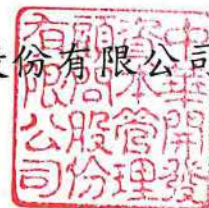 股份有限公司
中華開發
資本管理
顧問股份
有限公司